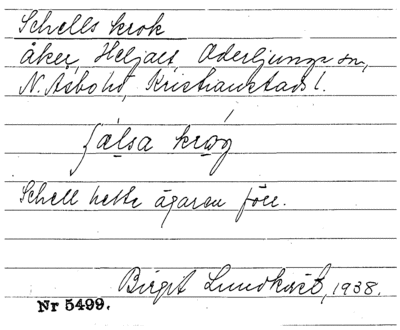 Schells krok
åker, Heljalt, Oderljunga sn,
N. Åsbo hd, Kristianstads l.
ʃälsa krog
Schell hette ägaren förr.
Birgit Lundkvist, 1938.
Nr 5499.